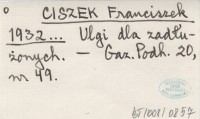 ° CISZEK Franciszek
1932... Ulgi dla zadłu-
żonych. – Gaz. Podh. 20,
nr 49.